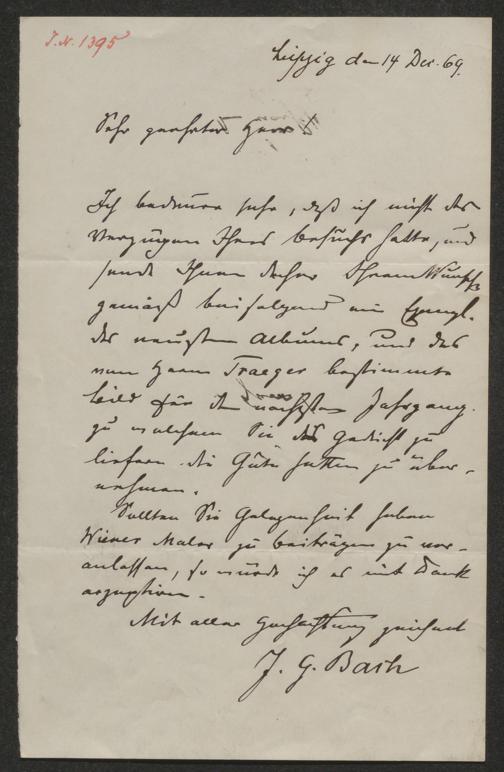 J.N. 1395
Leipzig den 14 Dec. 69.
Sehr geehrter Herr
Ich bedaure sehr, daß ich nicht das
Vergnügen Ihres Besuchs hatte, und
sende Ihnen daher Ihrem Wunsche
gemäß beifolgend ein Exempl.
des neusten Albums, und das
von Herrn Traeger bestimmte
Bild für den nächsten Jahrgang.
zu welchem Sie das Gedicht zu
liefern die Güte hatten zu über-
nehmen.
Sollten Sie Gelegenheit haben
Wiener Maler zu beiträgen zu ver-
anlassen, so würde ich es mit Dank
aczeptiren.
Mit aller Hochachtung zeichnet
J. G. Bach